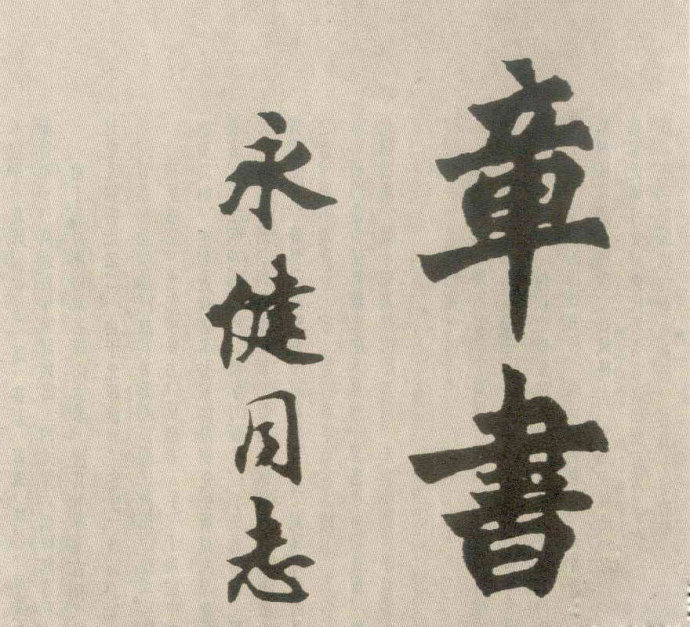 章書
永健同志